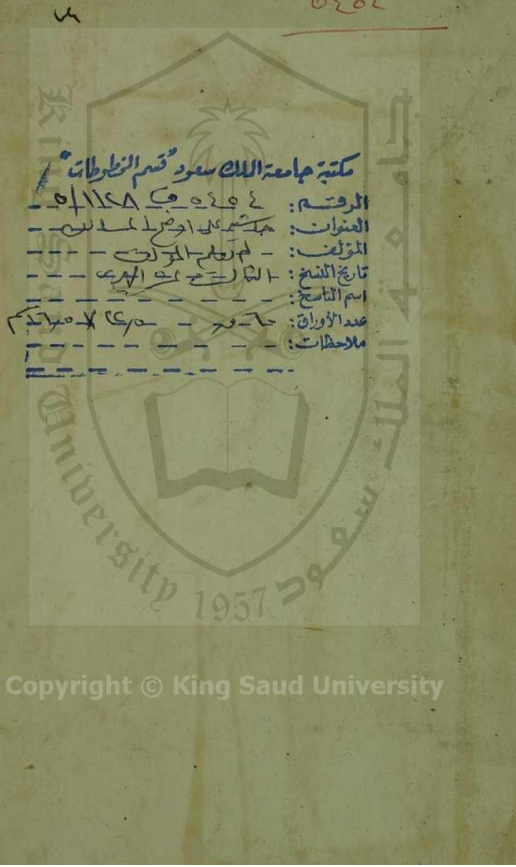 ٥٤٥٤
مكتبة جامعة الملك سعود "قسم المخطوطات"
الرقم: ٥٤٥٤ ف ١١٢٨/٥
العنوان: حاشية على
المؤلف: لم يعلم المؤلف
تاريخ النسخ: الثالث عشر الهجري
اسم الناسخ:
عدد الأوراق:
ملاحظات:
جامعة الملك سعود
King Saud University
1957
Copyright © King Saud University